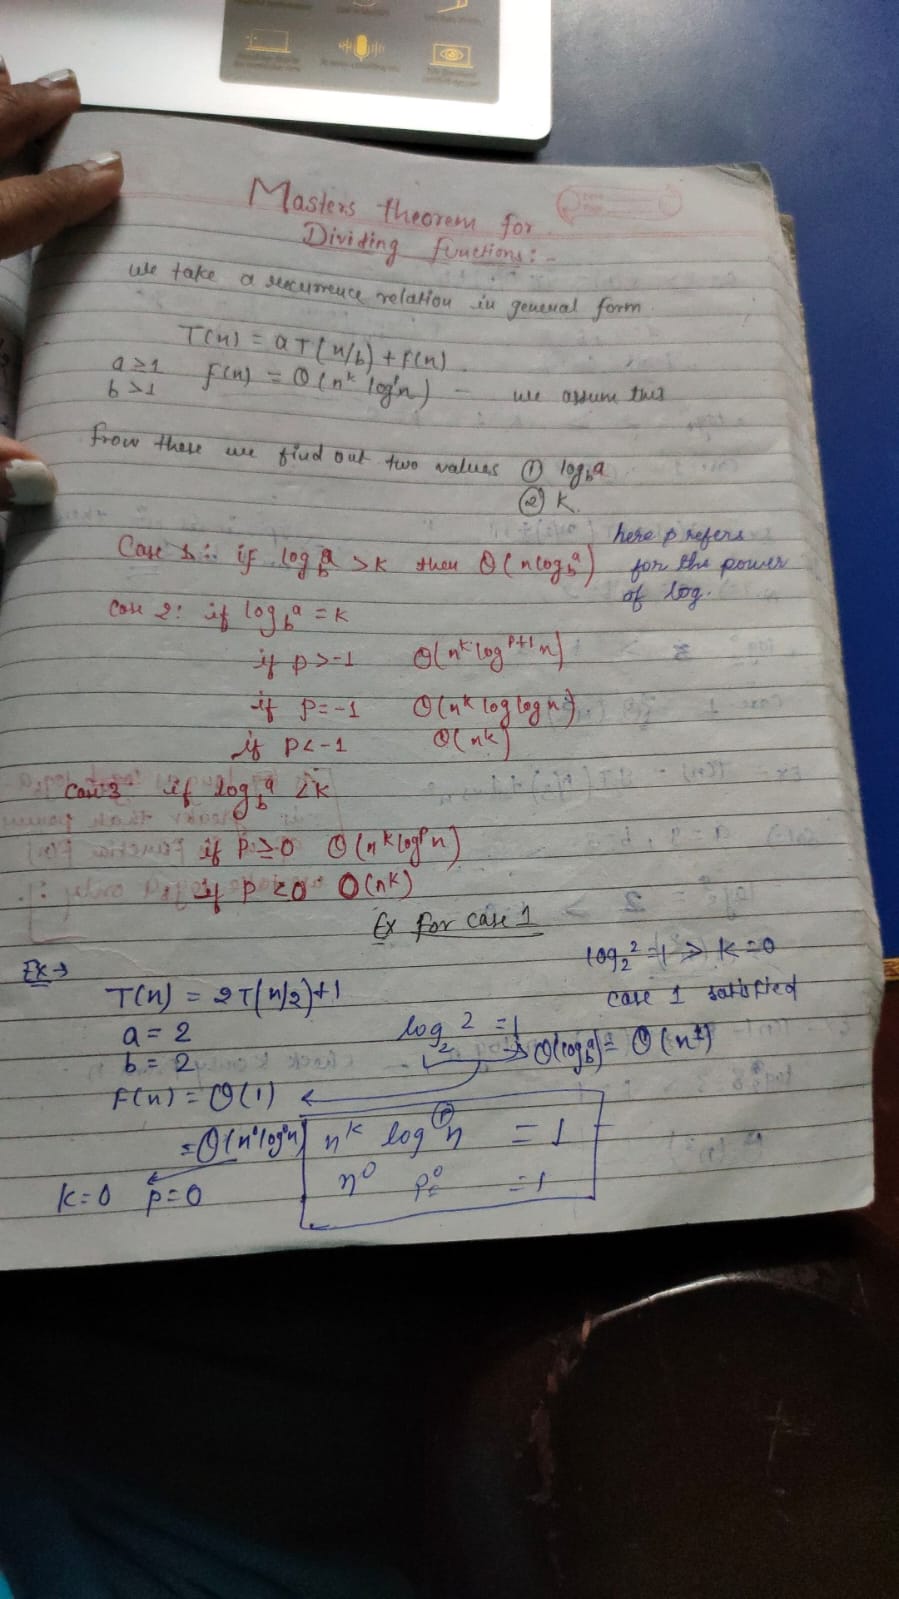 Masters theorem for
Dividing functions:-
we take a recurrence relation in general form.
T(n) = aT(n/b) + f(n).
a≥1
b>1
f(n) = Θ(n^k log^p n) - we assume this
from these we find out two values ① log_b a
② K.
here p refers
for the power
of log.
Case 1: if log_b^a > K then Θ(n log_b^a)
Case 2: if log_b^a = K
if p>-1 Θ(n^k log^{p+1} n)
if p=-1 Θ(n^k log log n)
if p<-1 Θ(n^k)
Case 3 if log_b^a < K
if P≥0 Θ(n^k log^p n)
if p<0 O(n^k)
Ex for case 1
Ex→
T(n) = 2T(n/2)+1
a = 2
b = 2
f(n) = Θ(1)
= Θ(n^0 log^0 n)
K=0 p=0
log_2 2 = 1
→ Θ(log_b^a) = Θ(n^1)
log_2^2 = 1 > K=0
case 1 satisfied
n^k log^p n = 1
n^0 p^0 = 1